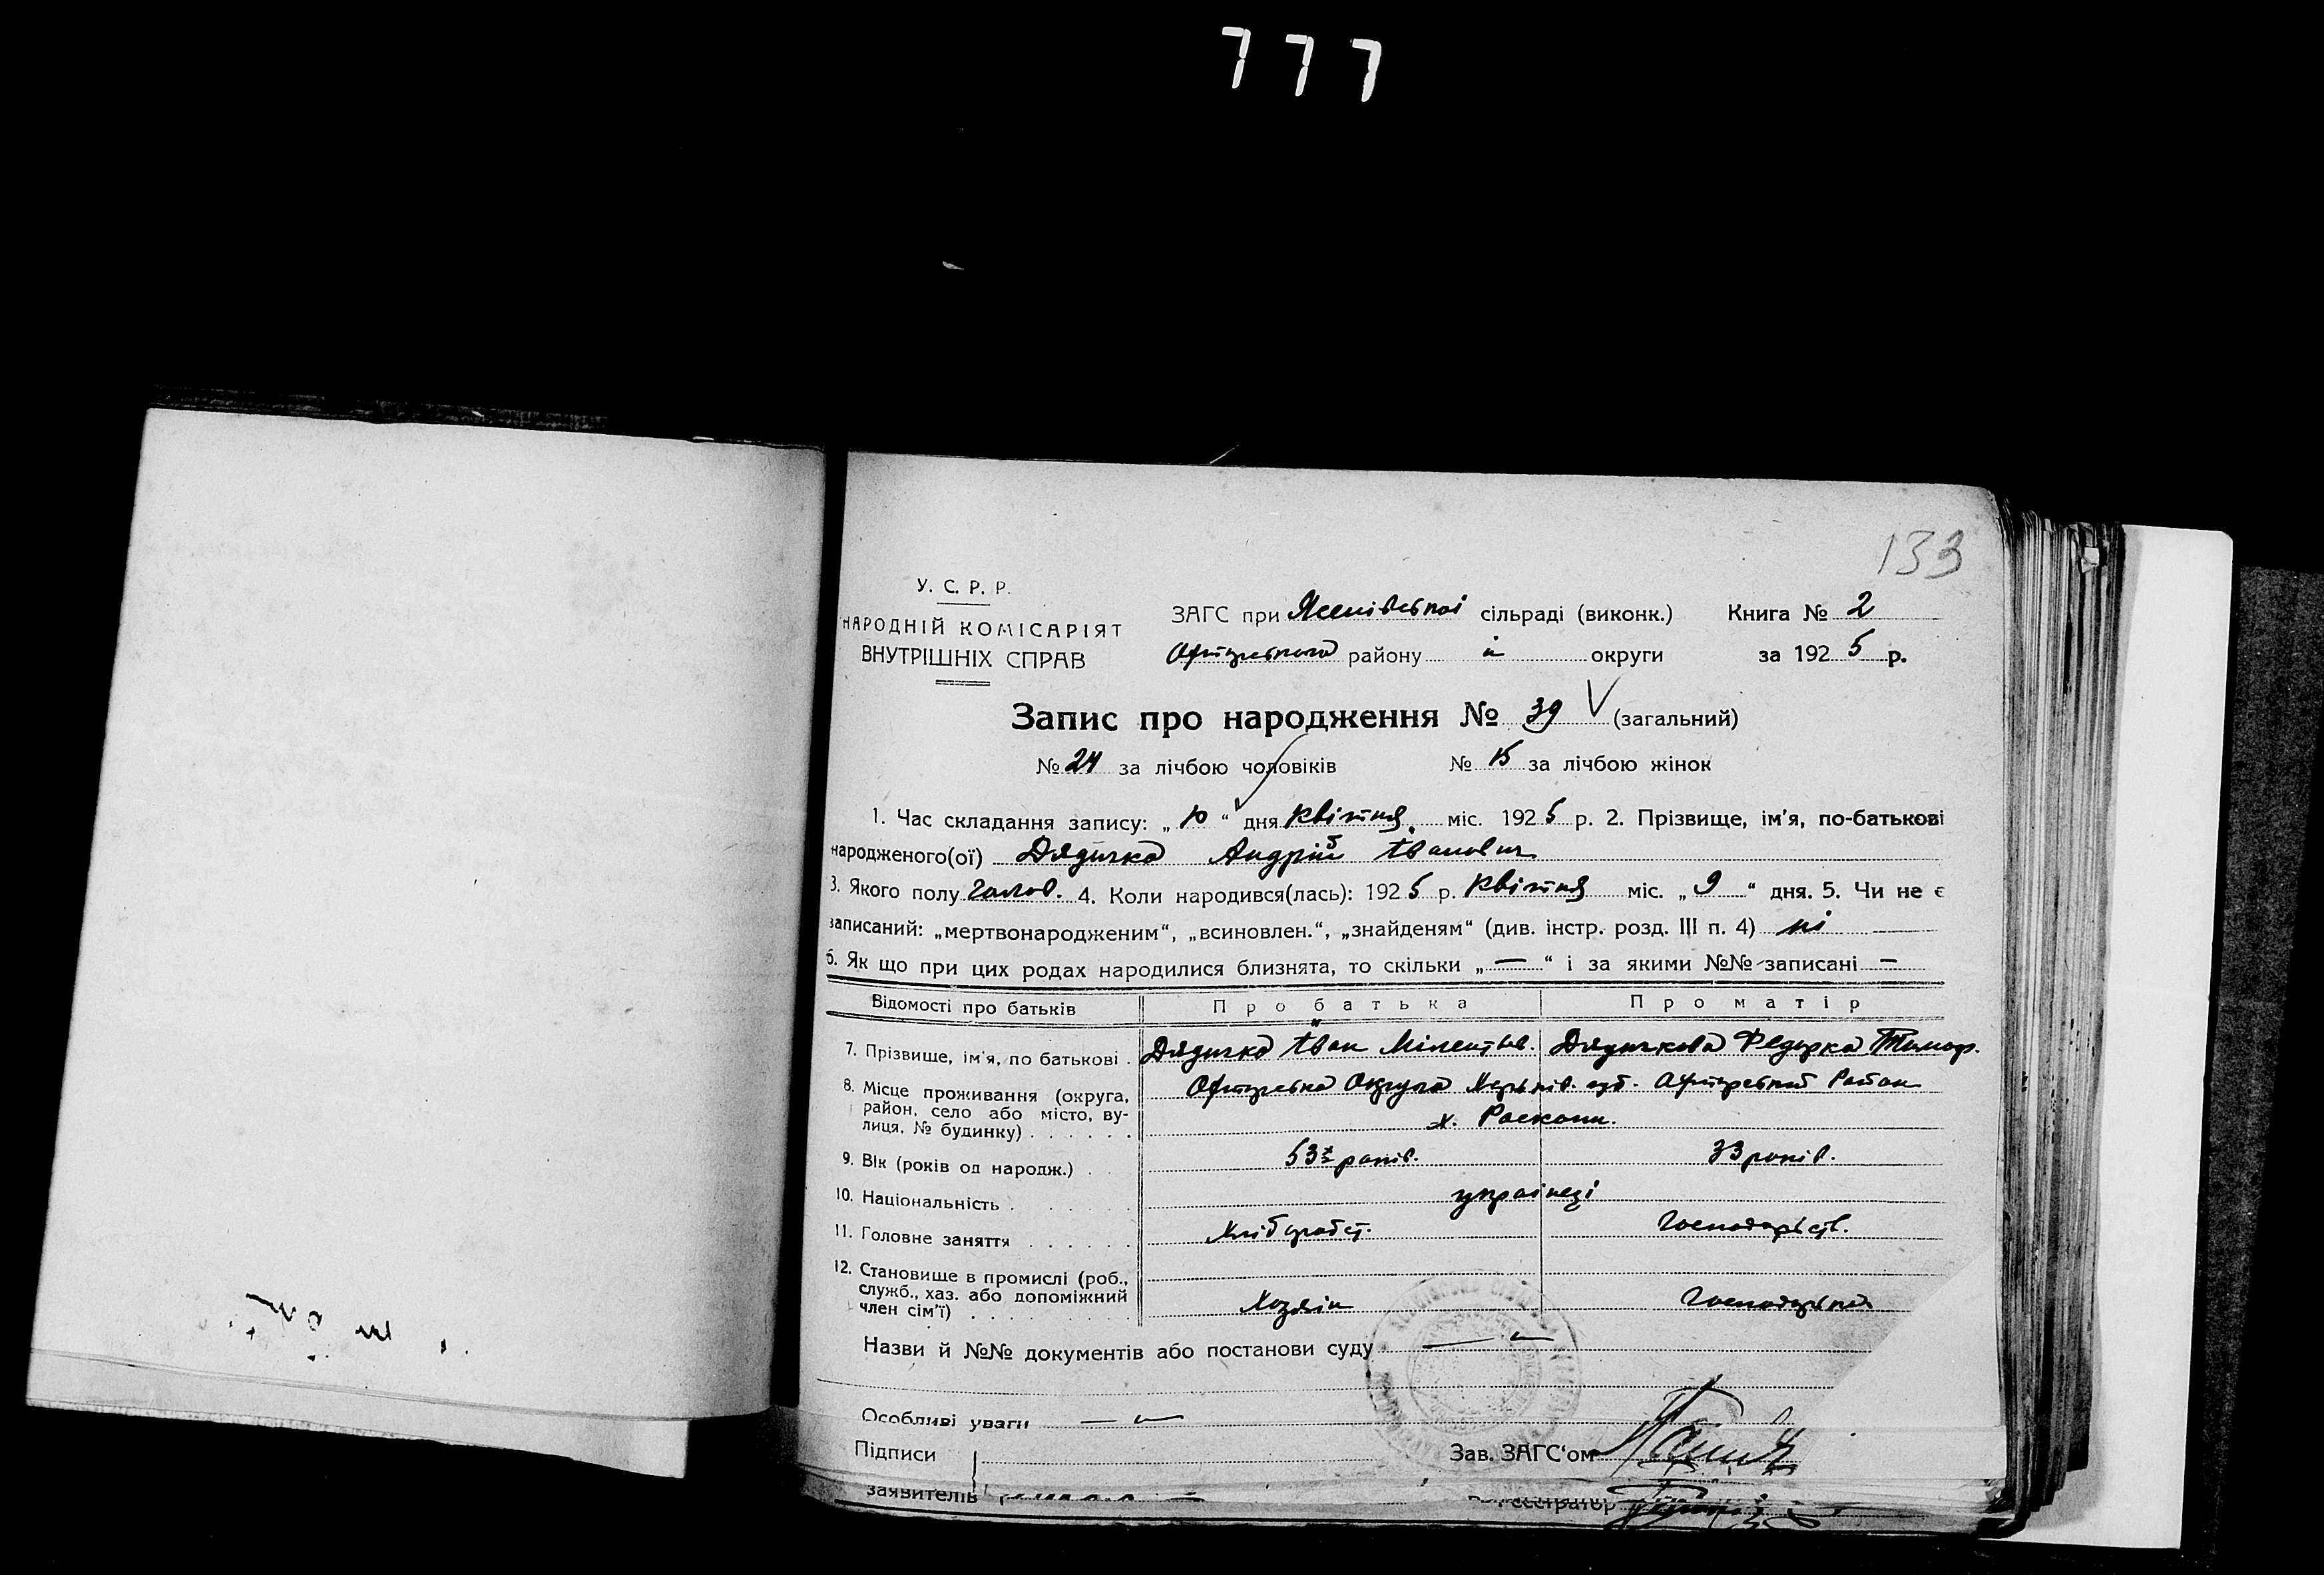 777
133
У. С. Р. Р.
НАРОДНІЙ КОМІСАРІЯТ
ВНУТРІШНІХ СПРАВ
ЗАГС при Ясенівської сільраді (виконк.) Книга № 2
Охтирського району " округи за 1925 р.
Запис про народження № 39 V (загальний)
№ 24 за лічбою чоловіків № 15 за лічбою жінок
1. Час складання запису: „10“ дня Квітня міс. 1925 р. 2. Прізвище, ім'я, по-батькові
народженого(ої) Дядичко Андрій Іванович
3. Якого полу чолов. 4. Коли народився(лась): 1925 р. Квітня міс. „9“ дня. 5. Чи не є
записаний: „мертвонародженим“, „всиновлен.“, „знайденям“ (див. інстр. розд. III п. 4) ні
6. Як що при цих родах народилися близнята, то скільки „—“ і за якими №№ записані —
Відомості про батьків Про батька Про матір
7. Прізвище, ім'я, по батькові . Дядичко Іван Мілентьів. Дядичкова Федорка Тимоф.
8. Місце проживання (округа, район, село або місто, вулиця, № будинку) . . . . . .
Округа Харьків. губ. Район
х. Роскопи.
9. Вік (років од народж.) . 53 років. 33 років.
10. Національність . . . . . . українці
11. Головне заняття . . . . . . Хлібороб Господарств.
12. Становище в промислі (роб., служб., хаз. або допоміжний член сім'ї) . . . . . . . . . Хозяін Господарка
Назви й №№ документів або постанови суду — " —
Особливі уваги — " —
Підписи
Зав. ЗАГС'ом
заявителів
Реєстратор